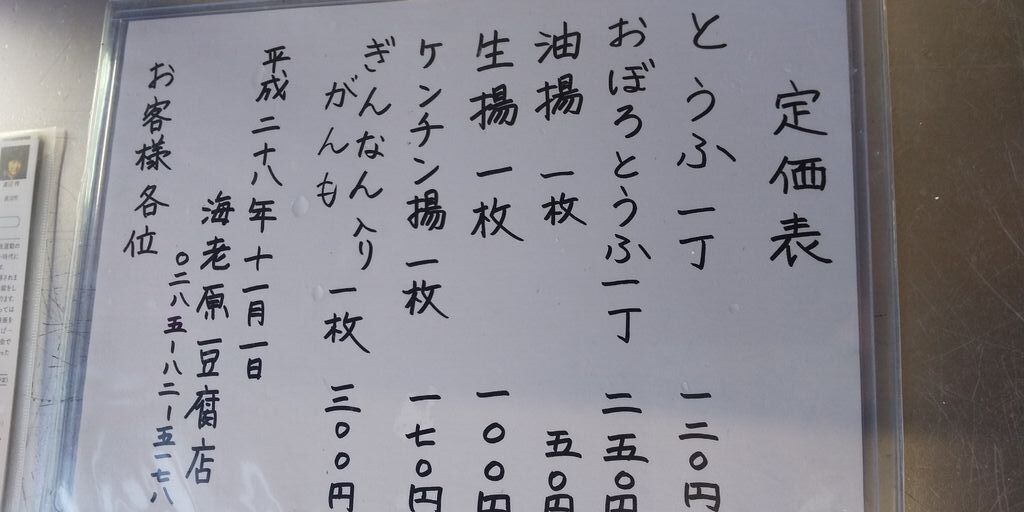 定価表
とうふ 一丁 一二〇円
おぼろとうふ一丁 二五〇円
油揚 一枚 五〇円
生揚 一枚 一〇〇円
ケンチン揚一枚 一七〇円
ぎんなん入り
がんも 一枚 三〇〇円
平成二十八年十一月一日
海老原豆腐店
〇二八五ー八二ー五一七八
お客様各位